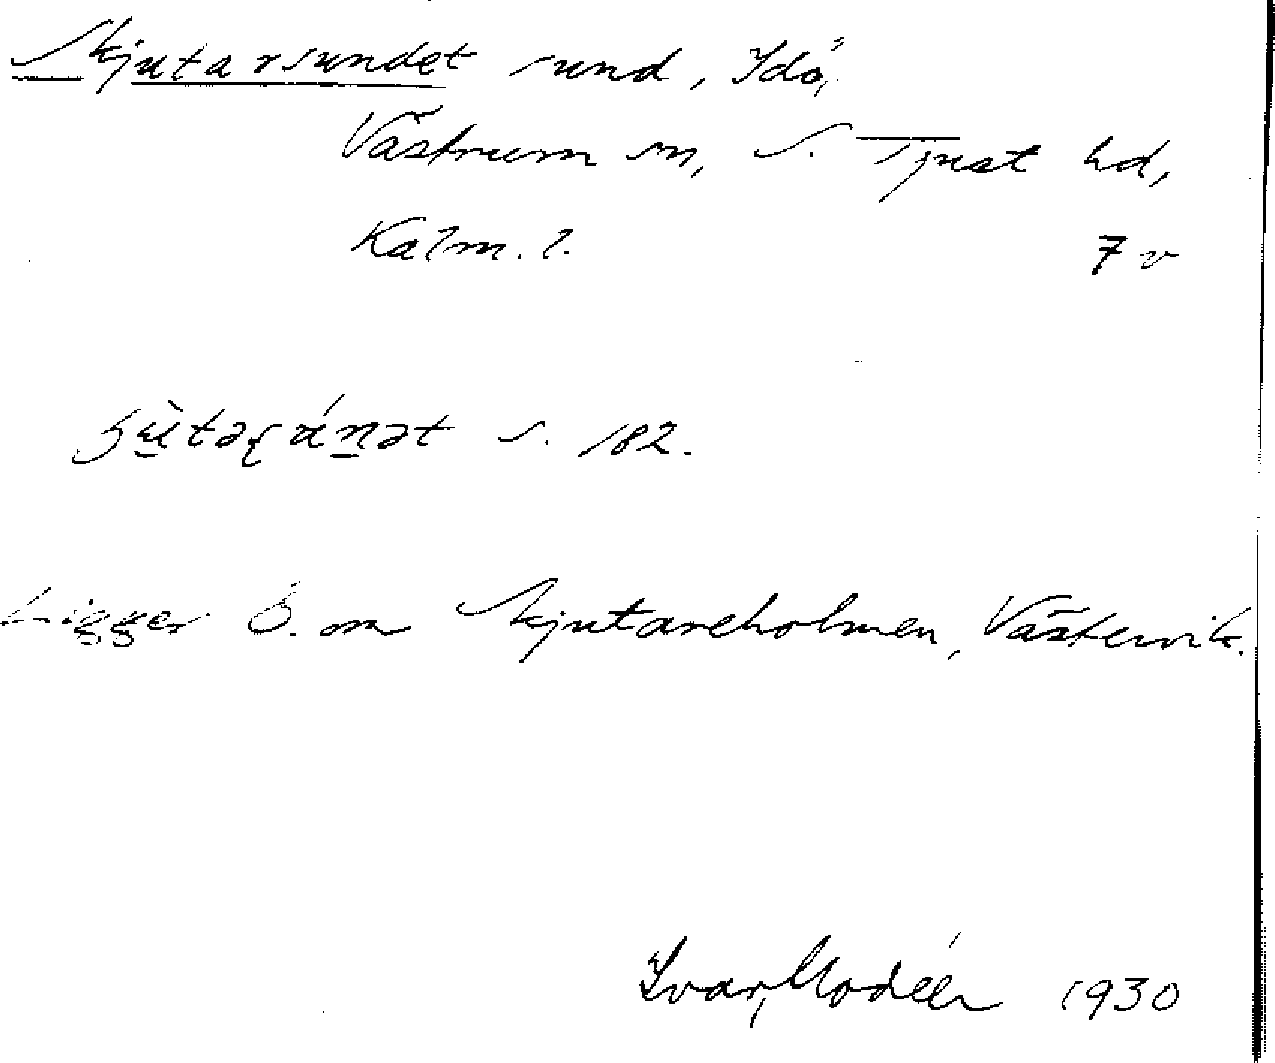 Skjutarsundet sund, Idö,
Västrum sn, S. Tjust hd,
Kalm. l. 7 v
s. 182.
Ligger Ö. om Skjutareholmen, Västervik.
Ivar Modéer 1930